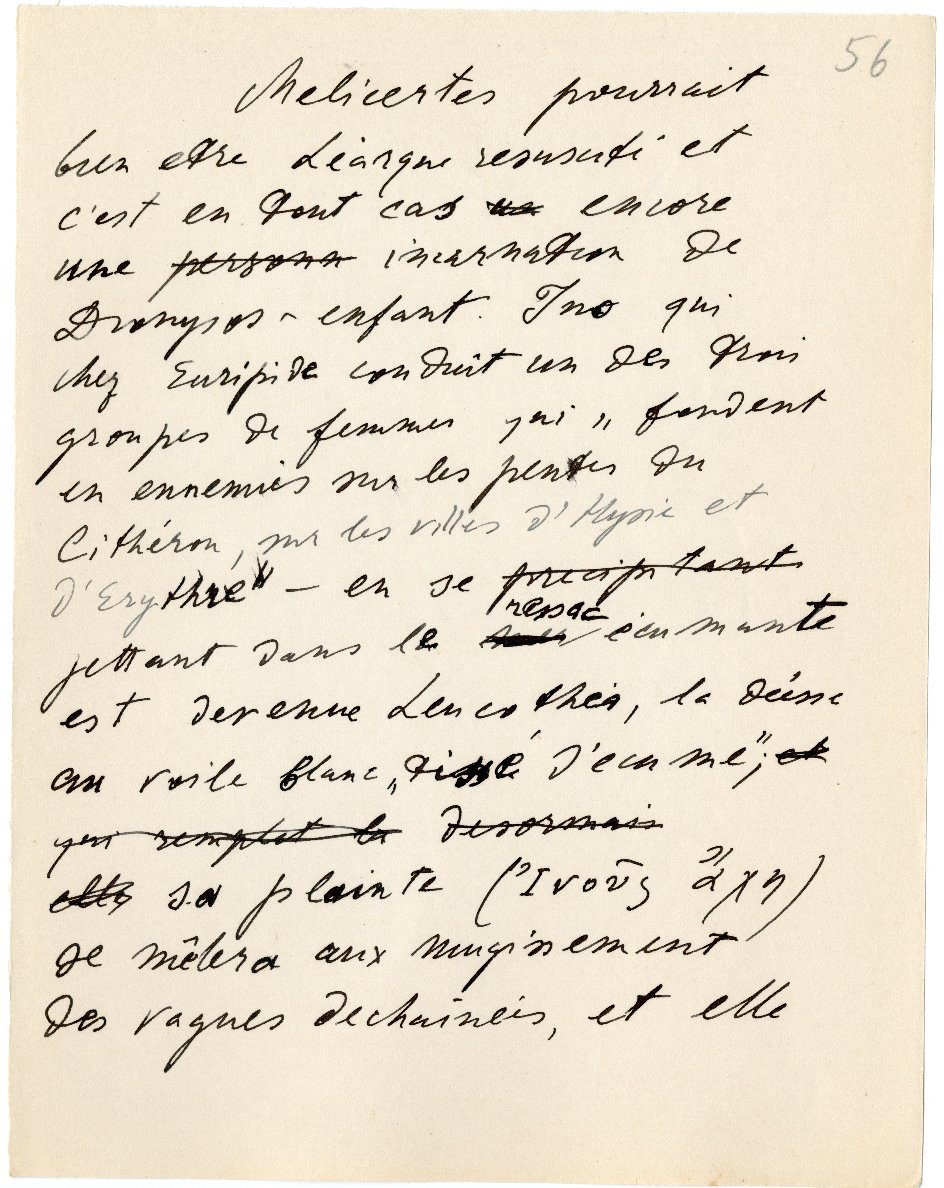 56
Melicertes pourrait
bien etre Léarque resuscité et
c'est en tout cas un encore
une personn incarnation de
Dionysos - enfant. Ino qui
chez Euripide conduit un des trois
groupes de femmes qui „ fondent
en ennemies sur les pentes du
Cithéron, sur les villes d'Hysie et
d'Erythré" - en se precipitant
ressac
jettant dans le écumante
est devenue Leucothéa, la déesse
au voile blanc „tissé d'ecume"; et
qui remplit la desormais
elle sa plainte (Ἰνοῦς ἄχη)
se mêlera aux mugissement
des vagues dechainées, et elle